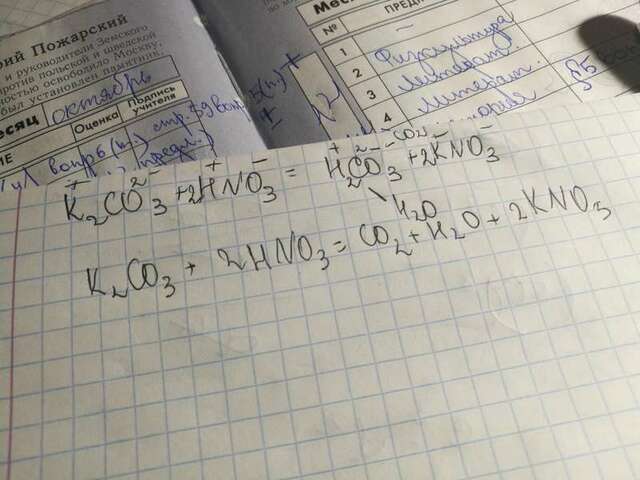 рий Пожарский
и руководители Земского
против польской и шведской
ностью освободило Москву.
был установлен памятник
есяц октябрь
Оценка
Подпись учителя
ИЕ
вопр 6 (п.) стр. 59
№
ПРЕДМ
1
2
3
4
Физкультура
Литерат.
Литерат.
85
K₂CO₃ + 2HNO₃ = H₂CO₃ + 2KNO₃
CO₂
H₂O
K₂CO₃ + 2HNO₃ = CO₂ + H₂O + 2KNO₃